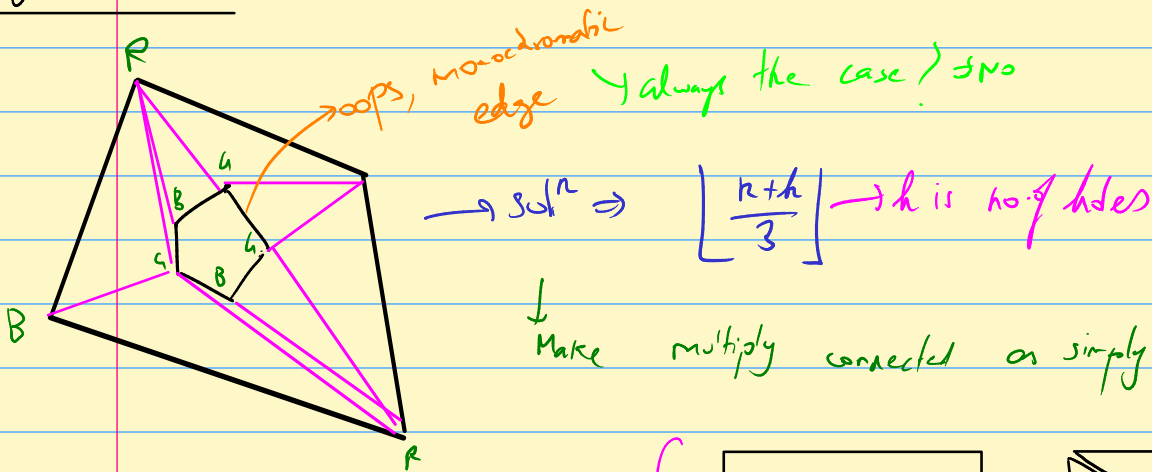 R
oops, monochromatic
edge
↳ always the case? ⇒ No
G
B
G
G
B
B
R
→ solⁿ ⇒ ⌊ n+h / 3 ⌋ → h is no. of holes
↓
Make multiply connected as simply